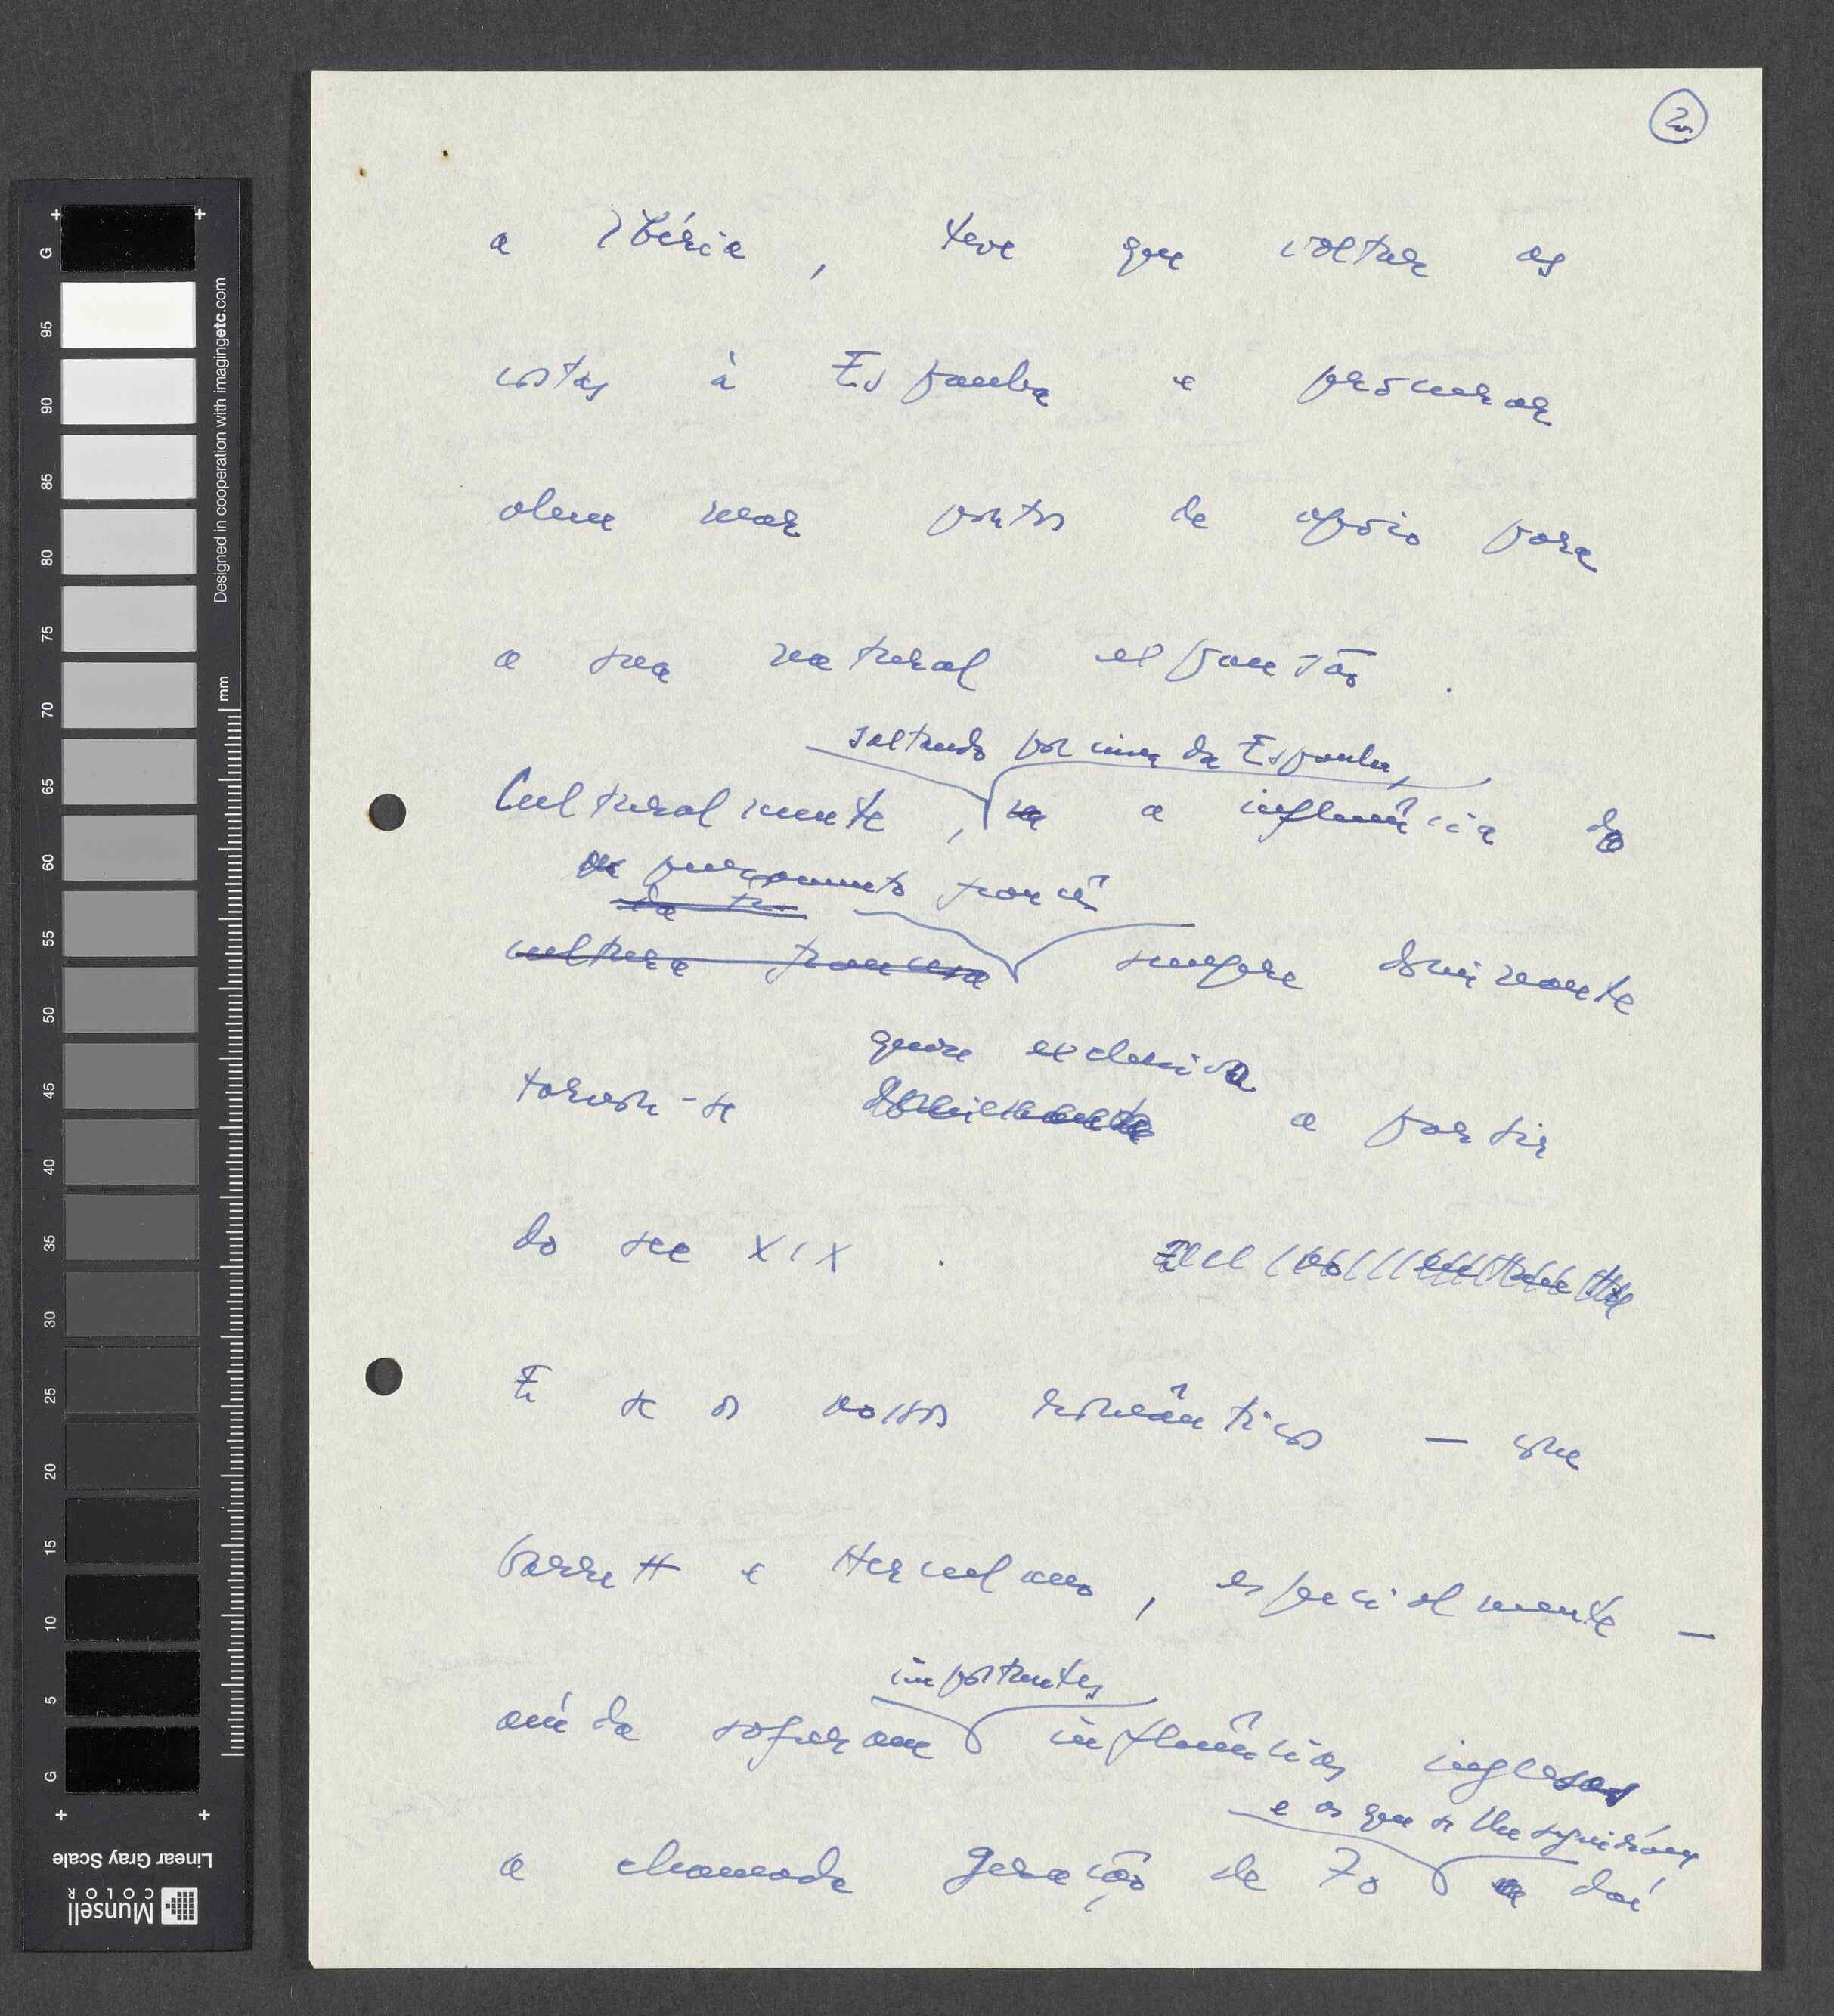 2
a Ibéria, teve que voltar as
costas à Espanha e procurar
alem mar pontos de apoio para
a sua natural expansão.
saltando por cima da Espanha,
Culturalmente, a influência do
pensamento francês
da fr
cultura francesa sempre dominante
quase exclusiva
tornou-se dominante a partir
do sec XIX.
E se os nossos românticos — com
Garrett e Herculano, especialmente —
importantes
ainda sofreram influências inglesas
e os que se lhe seguiram
a chamada geração de 70 daí
G
95
90
85
80
75
70
65
60
55
50
45
40
35
30
25
20
15
10
5
G
mm
Designed in cooperation with imagingetc.com
Linear Gray Scale
Munsell
COLOR